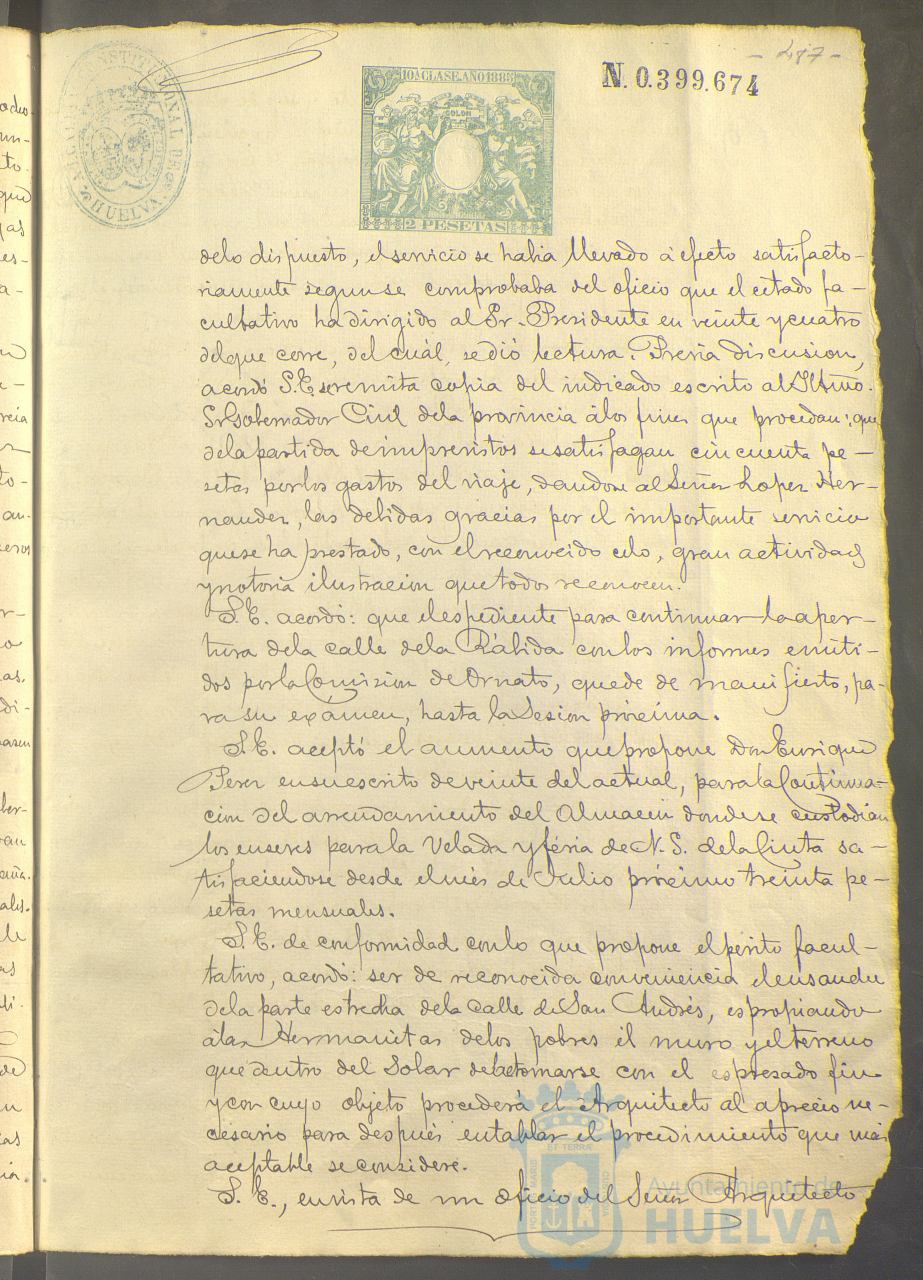 - 487 -
AYUNTAMIENTO CONSTITUCIONAL DE HUELVA
10ª CLASE. AÑO 1883
COLON
2 PESETAS
N. 0.399.674
delo dispuesto, el servicio se habia llevado á efecto satisfacto-
riamente segun se comprobaba del oficio que el citado fa-
cultativo ha dirigido al Sr. Presidente en veinte y cuatro
del que corre, del cuál, se dió lectura. Previa discusion,
acordó S. E. se remita copia del indicado escrito al Iltmo.
Sr Gobernador Civil dela provincia álos fines que procedan: que
dela partida de imprevistos se satisfagan cincuenta pe-
setas por los gastos del viaje, dandose al Señor Lopez Her-
nandez, las debidas gracias por el importante servicio
que se ha prestado, con el reconocido celo, gran actividad
y notoria ilustracion que todos reconocen.
S. E. acordó: que el espediente para continuar la aper-
tura dela calle dela Rábida con los informes emiti-
dos por la Comision de Ornato, quede de manifiesto, pa-
ra su exámen, hasta la Sesion próxima.
S. E. aceptó el aumento que propone Don Enrique
Perez en su escrito de veinte del actual, para la Continua-
cion del arrendamiento del Almacen donde se custodian
los enseres para la Velada y féria de N. S. dela Cinta sa-
tisfaciendose desde el mes de Julio próximo treinta pe-
setas mensuales.
S. E. de conformidad con lo que propone el périto facul-
tativo, acordó: ser de reconocida conveniencia el ensanche
dela parte estrecha dela calle de San Andrés, espropiando
álas Hermanitas delos pobres el muro y el terreno
que dentro del Solar debe tomarse con el espresado fin
y con cuyo objeto procederá el Arquitecto al aprecio ne-
cesario para después entablar el procedimiento que más
aceptable se considere.
S. E., en vista de un oficio del Señor Arquitecto
Ayuntamiento de
HUELVA